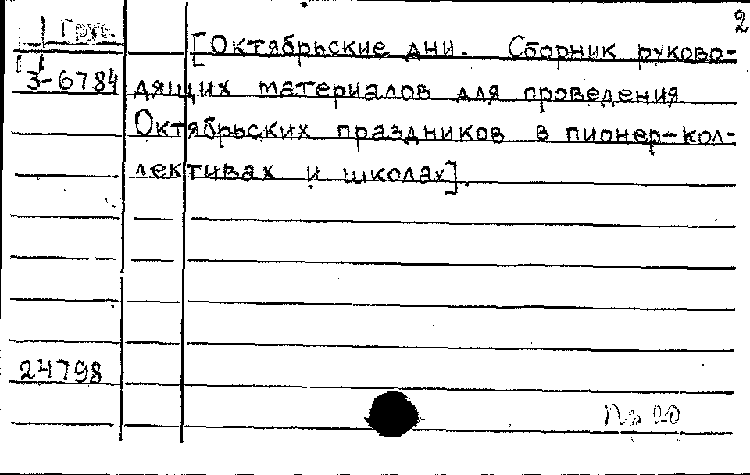 2
Груз.
[Октябрьские дни. Сборник руково-
3-6784 дящих материалов для проведения
Октябрьских праздников в пионер-кол-
лективах и школах].
24798